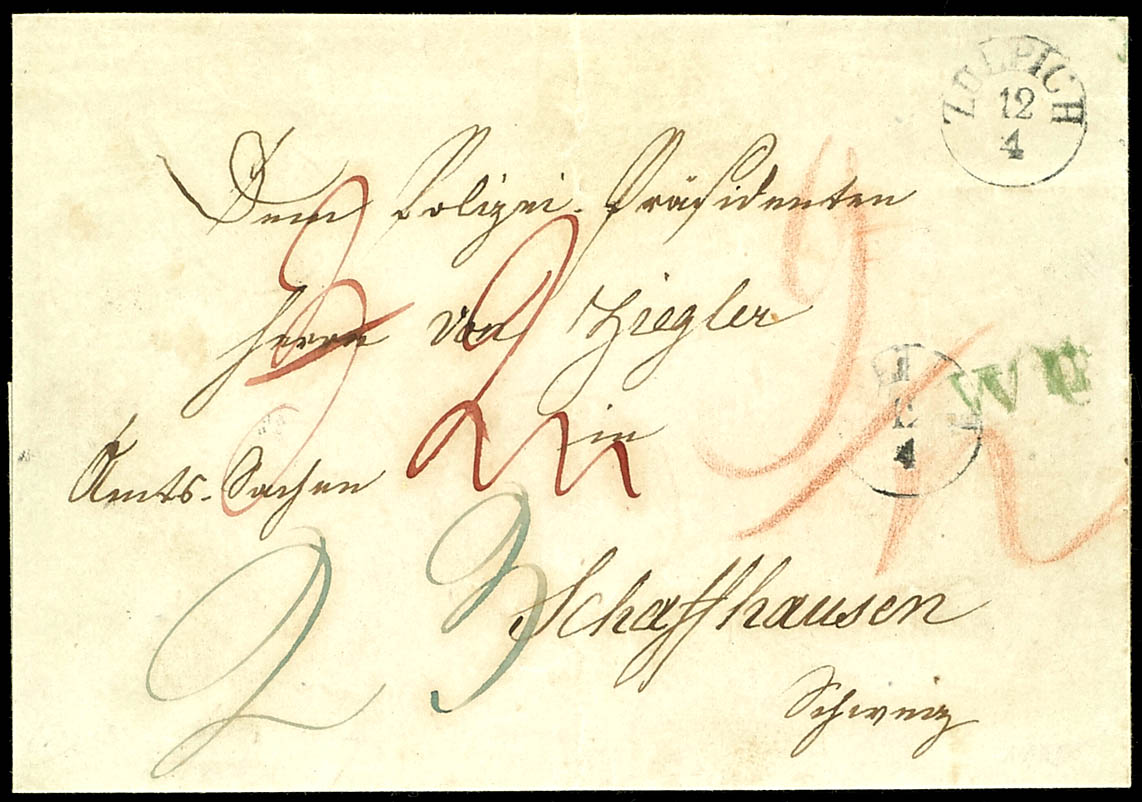 ZÜLPICH
12
4
Dem Polizei-Präsidenten
Herrn von Ziegler
in
Amts-Sachen
Schaffhausen
Schweiz
12
4
2 3